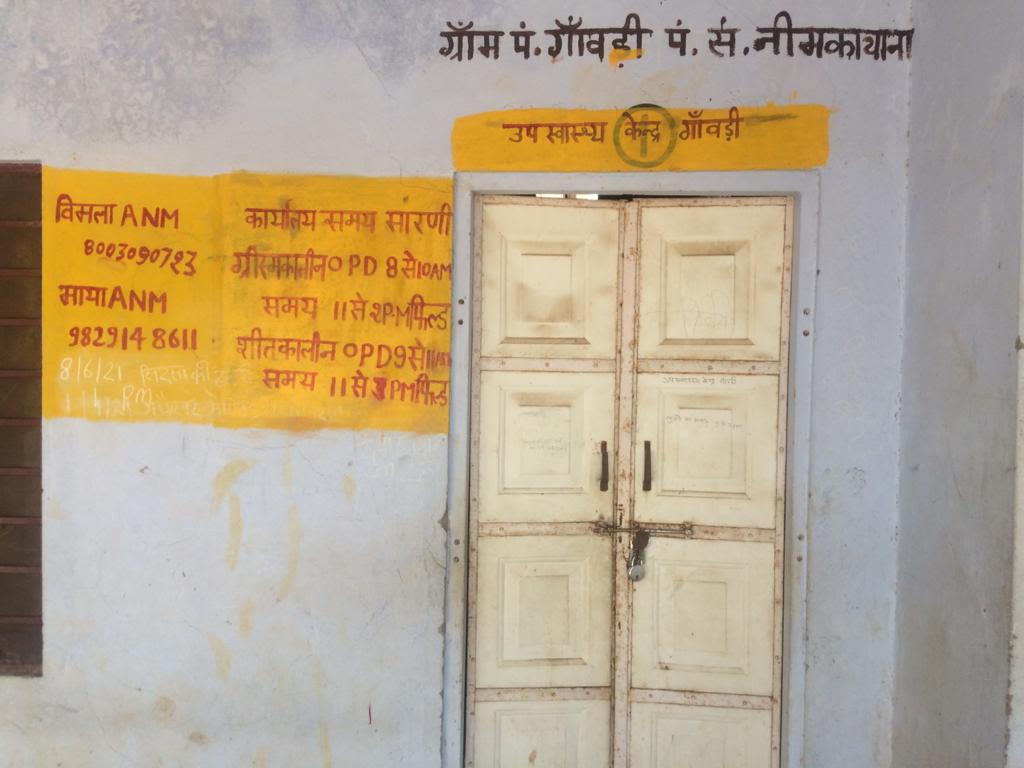 ग्राँम पं. गाँवड़ी पं. स. नीमकाथाना
उप स्वास्थ्य केन्द्र गाँवड़ी
विमला ANM
8003090723
माया ANM
9829148611
कार्यालय समय सारणी
ग्रीष्मकालीन OPD 8 से 10 AM
समय 11 से 2 P.M फिल्ड
शीतकालीन OPD 9 से 11 AM
समय 11 से 3 PM फिल्ड
8/6/21